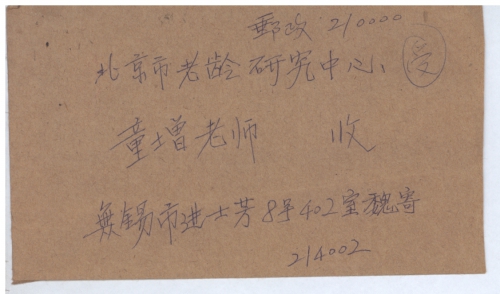 郵政 210000
北京市老龄研究中心、 受
童增老师 收
無锡市进士芳8号402室魏寄
214002